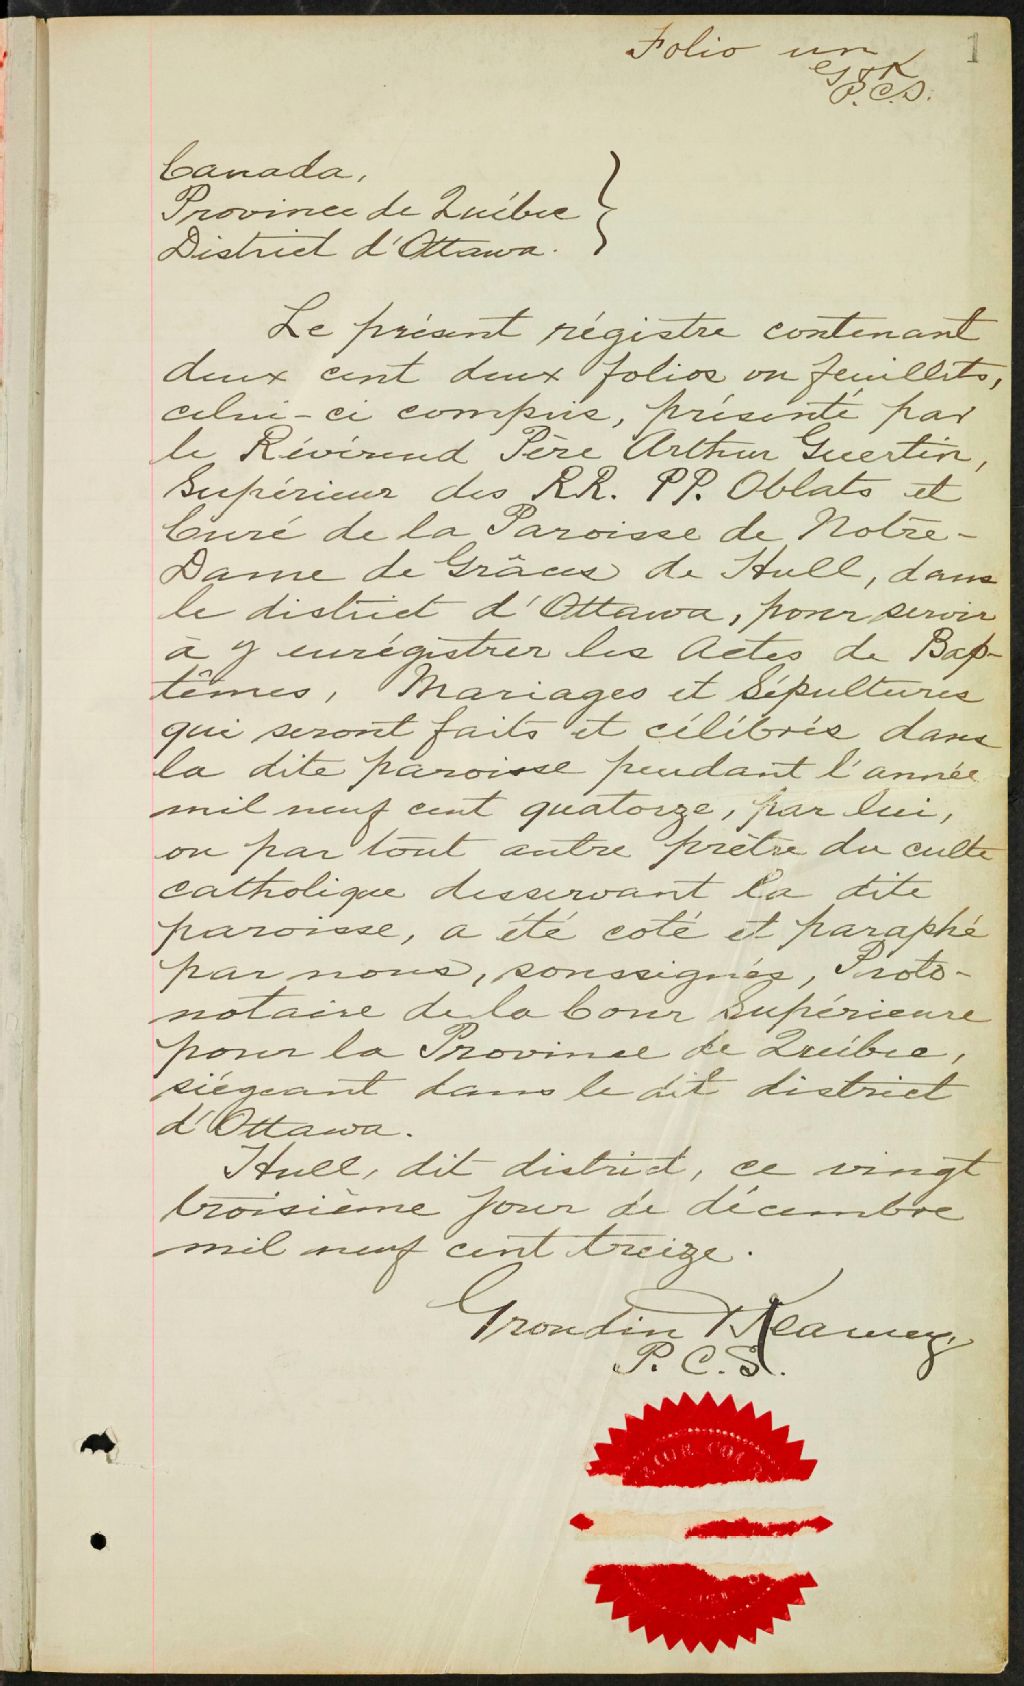 Folio un
1
G & K
P.C.S.
Canada,
Province de Québec
District d'Ottawa.
Le présent régistre contenant
deux cent deux folios ou feuillets,
celui-ci compris, présenté par
le Révérend Père Arthur Guertin,
Supérieur des RR. PP. Oblats et
Curé de la Paroisse de Notre-
Dame de Grâces de Hull, dans
le district d'Ottawa, pour servir
à y enrégistrer les Actes de Bap-
têmes, Mariages et Sépultures
qui seront faits et célébrés dans
la dite paroisse pendant l'année
mil neuf cent quatorze, par lui,
ou par tout autre prêtre du culte
catholique desservant la dite
paroisse, a été coté et paraphé
par nous, soussignés, Proto-
notaire de la Cour Supérieure
pour la Province de Québec,
siégeant dans le dit district
d'Ottawa.
Hull, dit district, ce vingt
troisième jour de décembre
mil neuf cent treize.
Grondin & Kearney,
P.C.S.